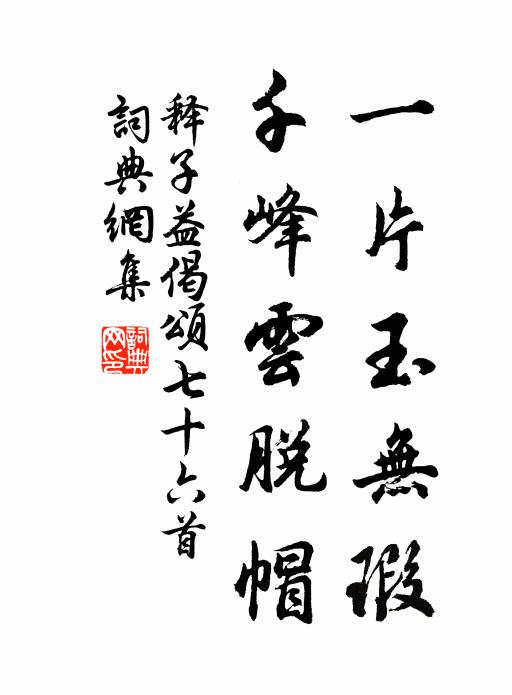 一片玉無瑕
千峰雲脱帽
释子益偈頌七十六首
詞典網集
詞典网印